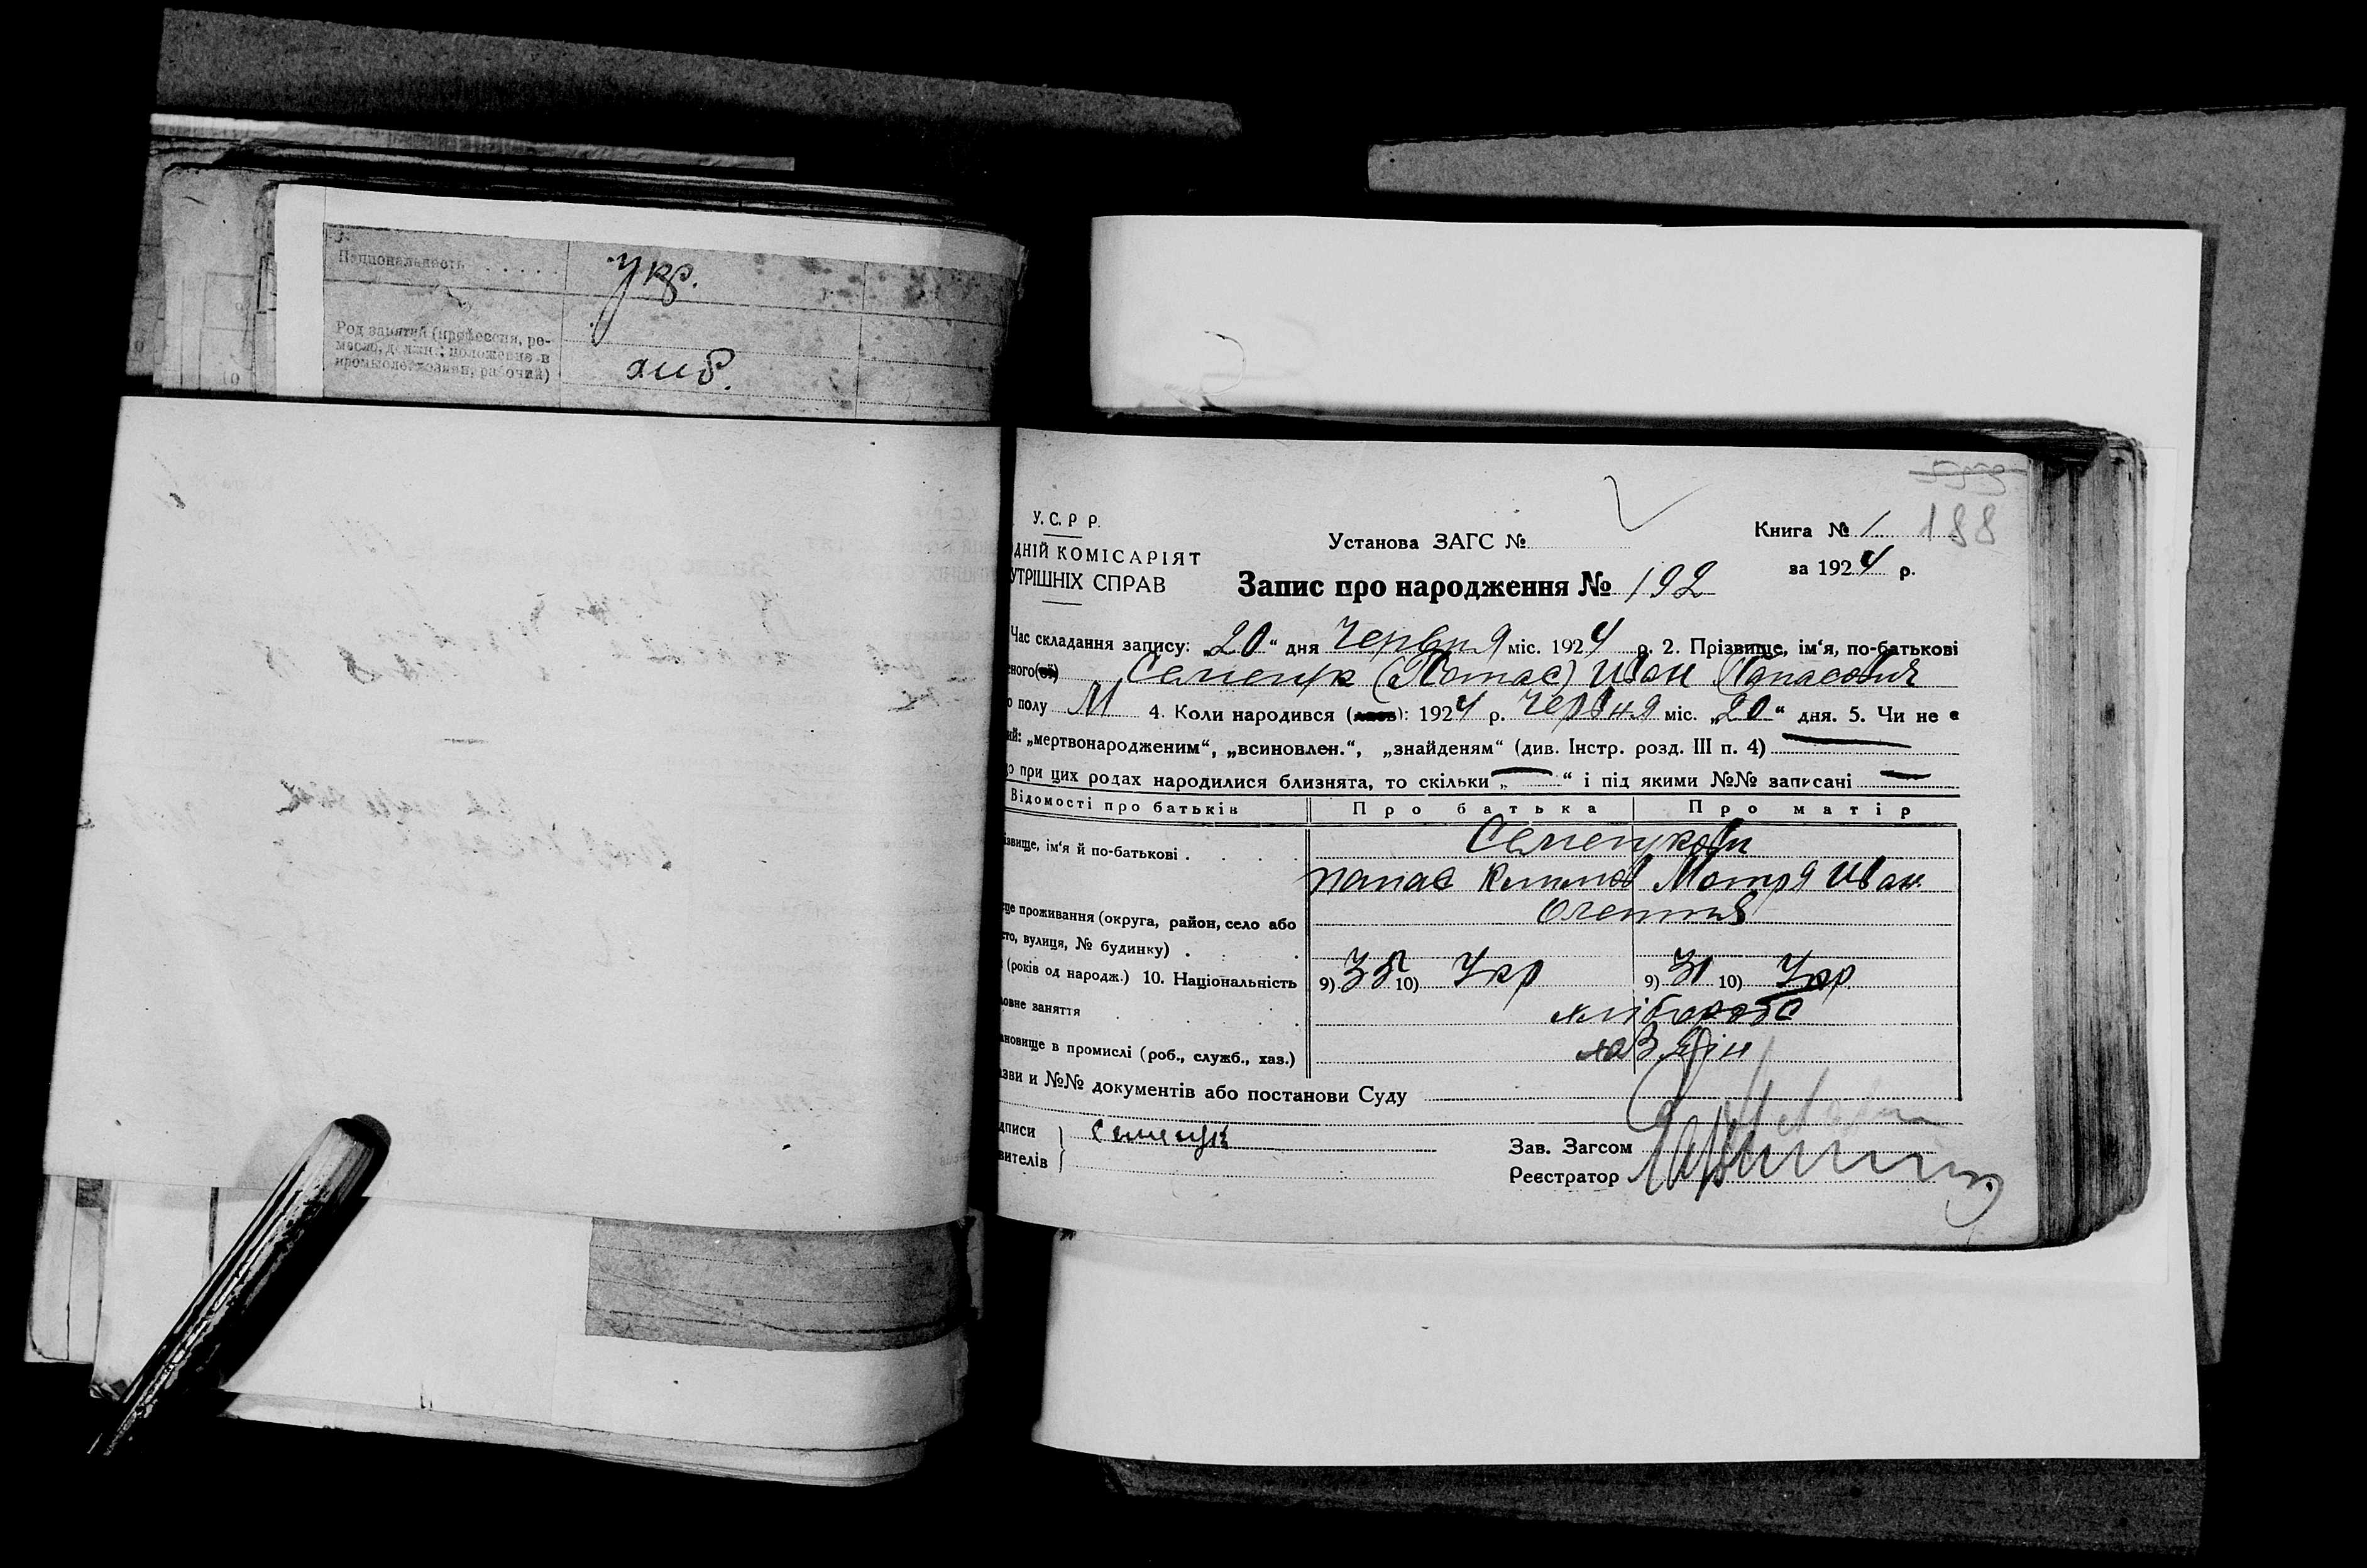 Национальность . . . . . укр.
Род занятий (профессия, ре-
месло, должн.; положение в
хлиб.
У. С. Р Р.
ДНІЙ КОМІСАРІЯТ
УТРІШНІХ СПРАВ
Установа ЗАГС №
Книга № 1 188
за 1924 р.
Запис про народження № 192
Час складання запису: „20“ дня Червня міс. 1924 р. 2. Прізвище, ім‘я, по-батькові
еного(ої) Семенук (Потас) Иван Панасович
о полу М 4. Коли народився (лась): 1924 р. Червня міс. „20“ дня. 5. Чи не є
ий: „мертвонародженим“, „всиновлен.“, „знайденям“ (див. Інстр. розд. III п. 4) —
о при цих родах народилися близнята, то скільки „—“ і під якими №№ записані —
Відомості про батьків Про батька Про матір
ізвище, ім‘я й по-батькові . . . . Семенукови
панас Мотря Иван
це проживання (округа, район, село або
то, вулиця, № будинку) . . .
(років од народж.) 10. Національність 9) 35 10) Укр 9) 31 10) Укр.
овне заняття . . . . . хлібороб
ановище в промислі (роб., служб., хаз.) хазяін
азви и №№ документів або постанови Суду
дписи
вителів } Семенук
Зав. Загсом
Реєстратор